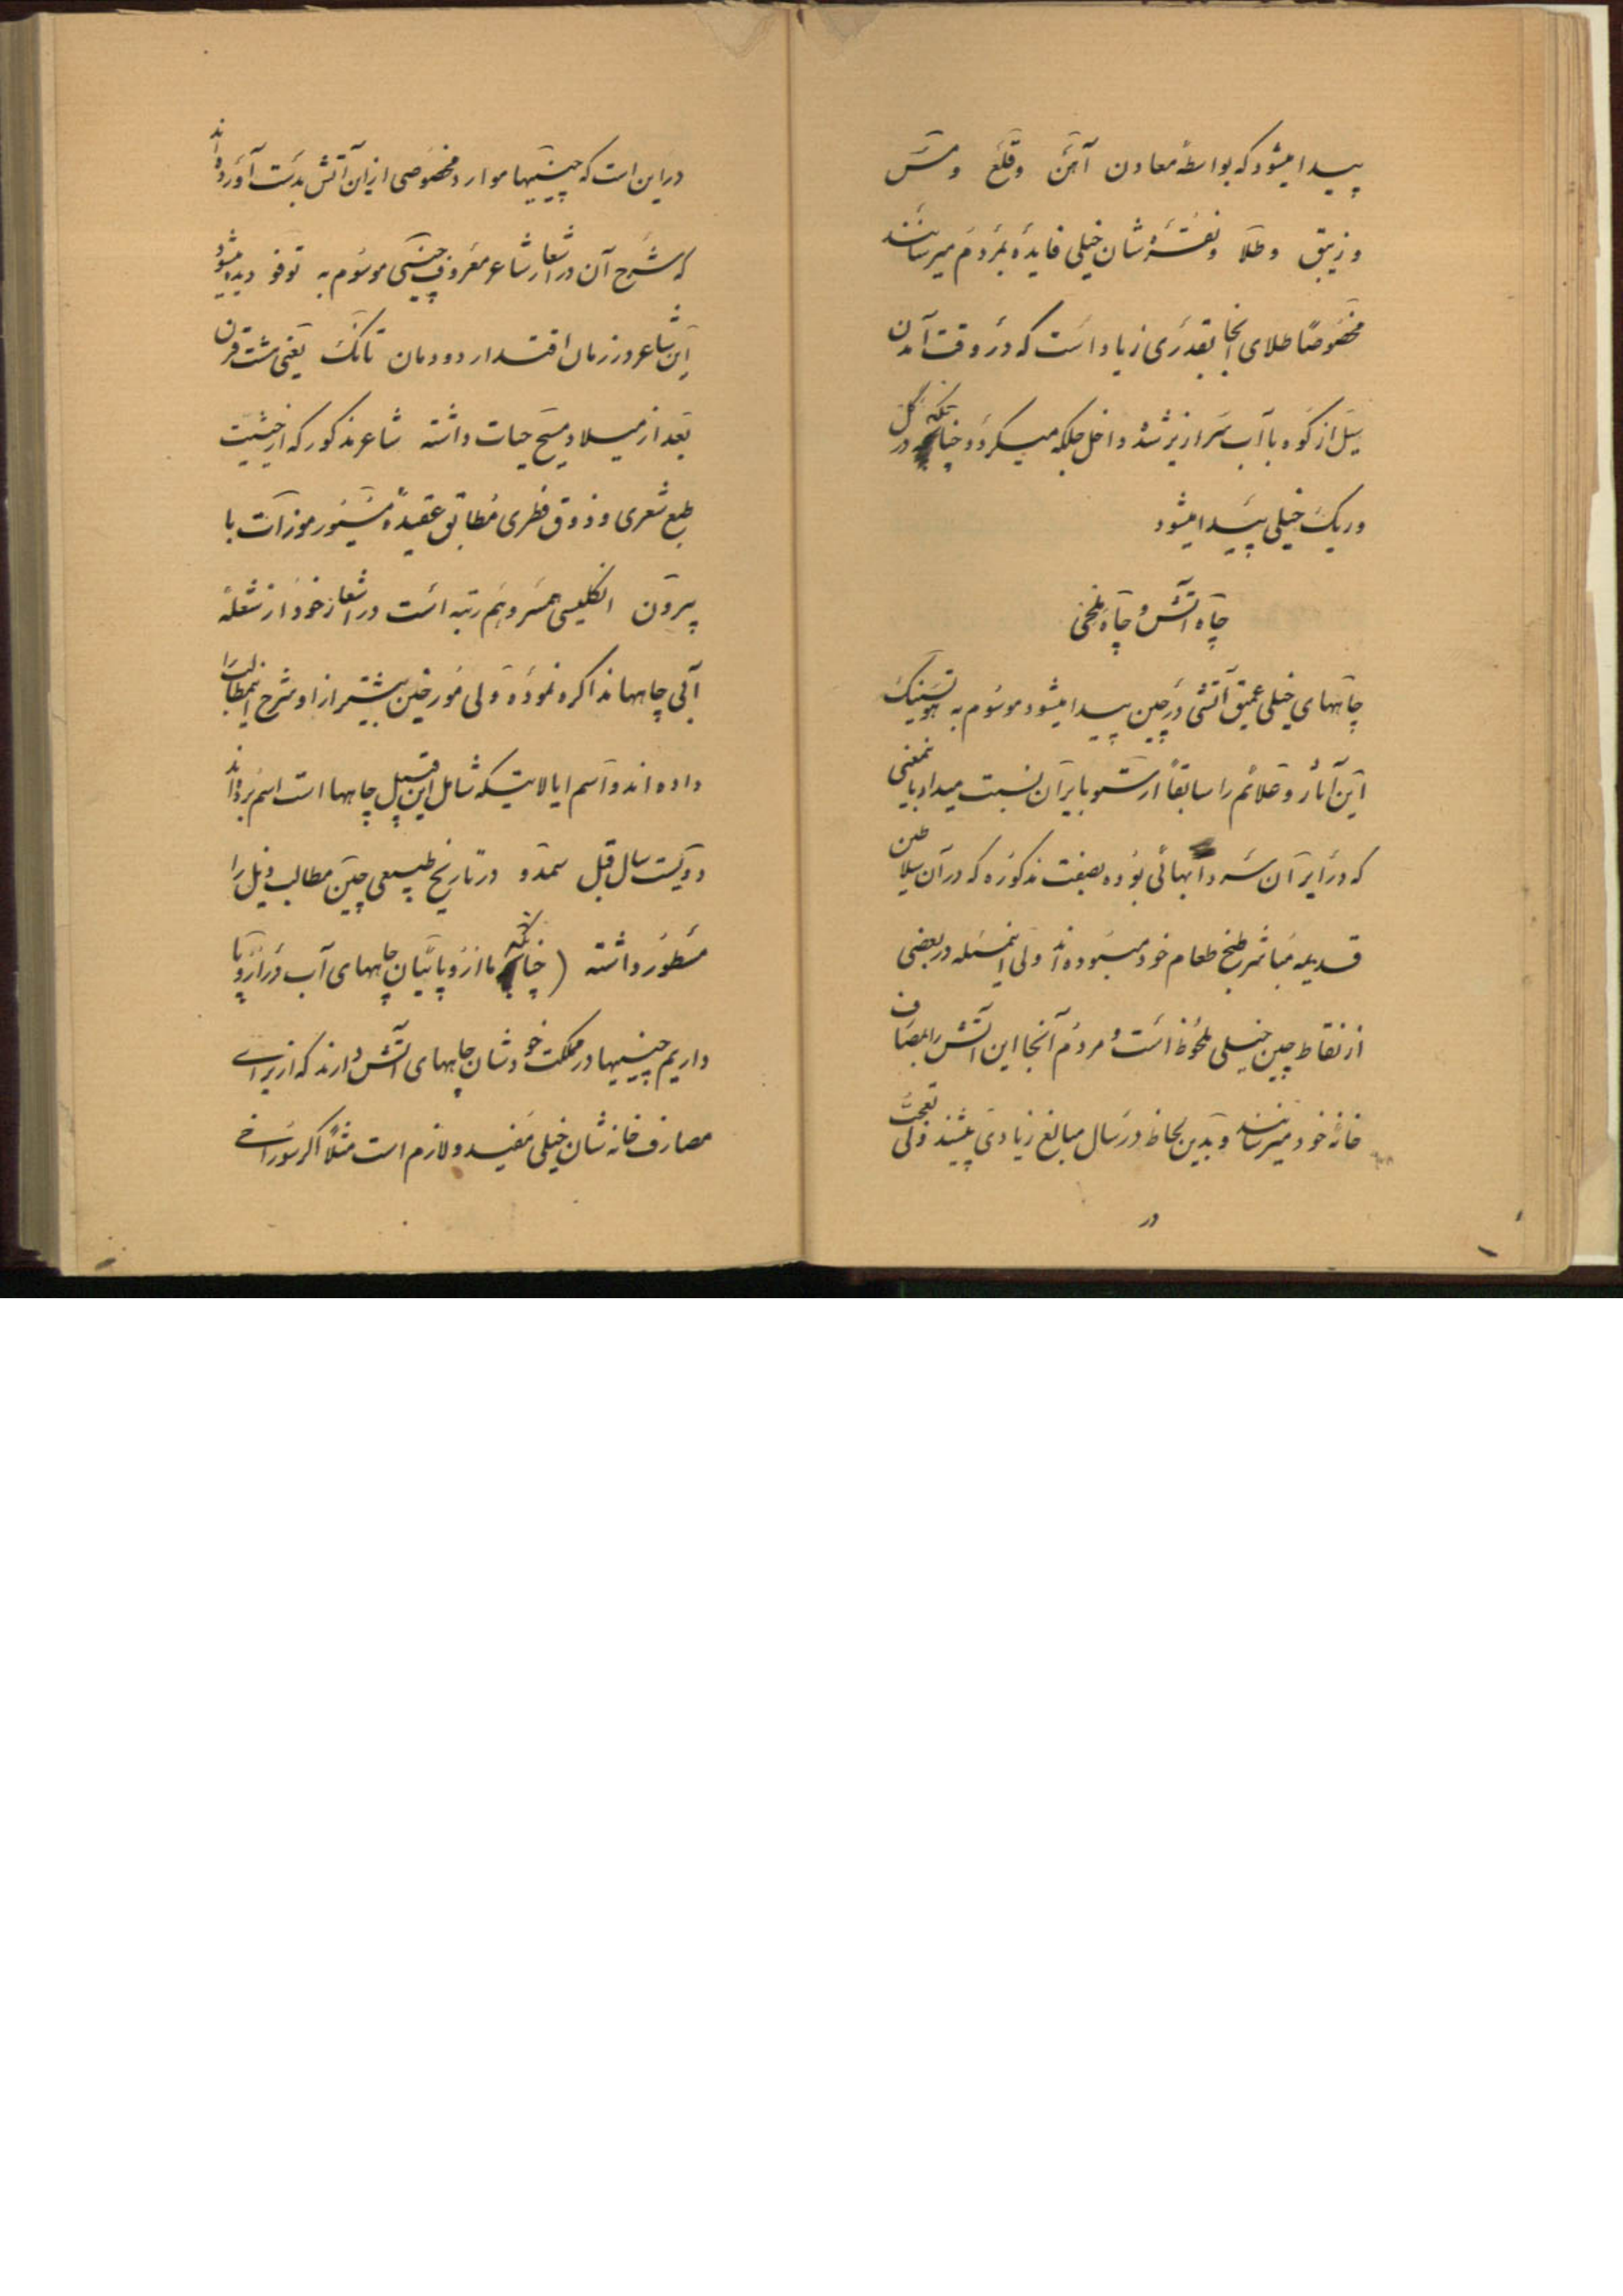 پیدا میشود که بواسطهٔ معادن آهن و قلع و مس
و زیبق و طلا و نقرهٔ شان خیلی فایده بمردم میرسانند
مخصوصاً طلای آنجا بقدری زیاد است که در وقت آمدن
سیل از کوه با آب سرازیر شده داخل جلکه میگردد چنانکه در گل
و ریگ خیلی پیدا میشود
چاه آتش و چاه یخی
چاههای خیلی عمیق آتشی در چین پیدا میشود موسوم به هوتسینگ
این آثار و علائم را سابقاً ارسطو بایران نسبت میداد باینمعنی
که در ایران سردابهائی بوده بصفت مذکوره که در آن سلاطین
قدیمه مباشر طبخ طعام خود میبوده‌اند ولی اینمسئله در بعضی
از نقاط چین خیلی ملحوظ است و مردم آنجا این آتش را بمصارف
خانهٔ خود میرسانند و بدین لحاظ در سال مبالغ زیادی پیشند ولی تعجب
در
در این است که چینیها موارد مخصوصی از این آتش بدست آورده‌اند
که شرح آن در اشعار شاعر معروف چینی موسوم به توفو دیده میشود
این شاعر در زمان اقتدار دودمان تانگ یعنی هشت قرن
بعد از میلاد مسیح حیات داشته شاعر مذکور که از حیثیت
طبع شعری و ذوق فطری مطابق عقیدهٔ مسیور موزآت با
بیرون انگلیسی همسر و هم رتبه است در اشعار خود از شعلهٔ
آبی چاهها مذاکره نموده ولی مورخین بیشتر از او شرح اینمطالب را
داده‌اند و اسم ایالاتیکه شامل این قبیل چاهها است اسم برده‌اند
دویست سال قبل سمدو در تاریخ طبیعی چین مطالب ذیل را
مسطور داشته (چنانکه ما اروپائیان چاههای آب در اروپا
داریم چینیها در مملکت خودشان چاههای آتش دارند که از برای
مصارف خانه شان خیلی مفید و لازم است مثلاً اگر سوراخی